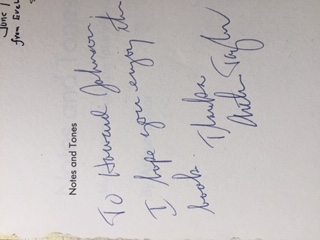 June 1
from Evel
Notes and Tones
To Howard Johnson.
I hope you enjoy the
book. Thanks
Arthur Taylor